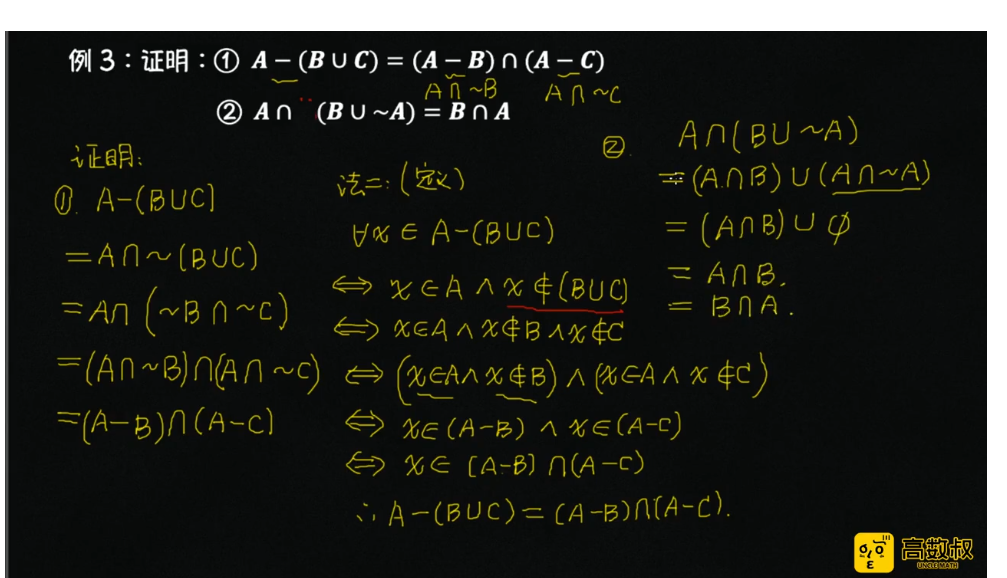 例 3：证明：① A − (B ∪ C) = (A − B) ∩ (A − C)
A∩~B
A∩~C
② A ∩ (B ∪ ~A) = B ∩ A
证明:
①. A-(B∪C]
=A∩~(B∪C)
=A∩(~B∩~C)
=(A∩~B)∩(A∩~C)
=(A-B)∩(A-C]
法二:(定义)
∀x∈A-(B∪C)
⇔ x∈A∧x∉(B∪C)
⇔ x∈A∧x∉B∧x∉C
⇔ (x∈A∧x∉B)∧(x∈A∧x∉C)
⇔ x∈(A-B)∧x∈(A-C)
⇔ x∈[A-B]∩(A-C)
∴A-(B∪C)=(A-B)∩(A-C).
②. A∩(B∪~A)
=(A∩B)∪(A∩~A)
=(A∩B)∪φ
=A∩B.
=B∩A.
高数叔
UNCLE MATH